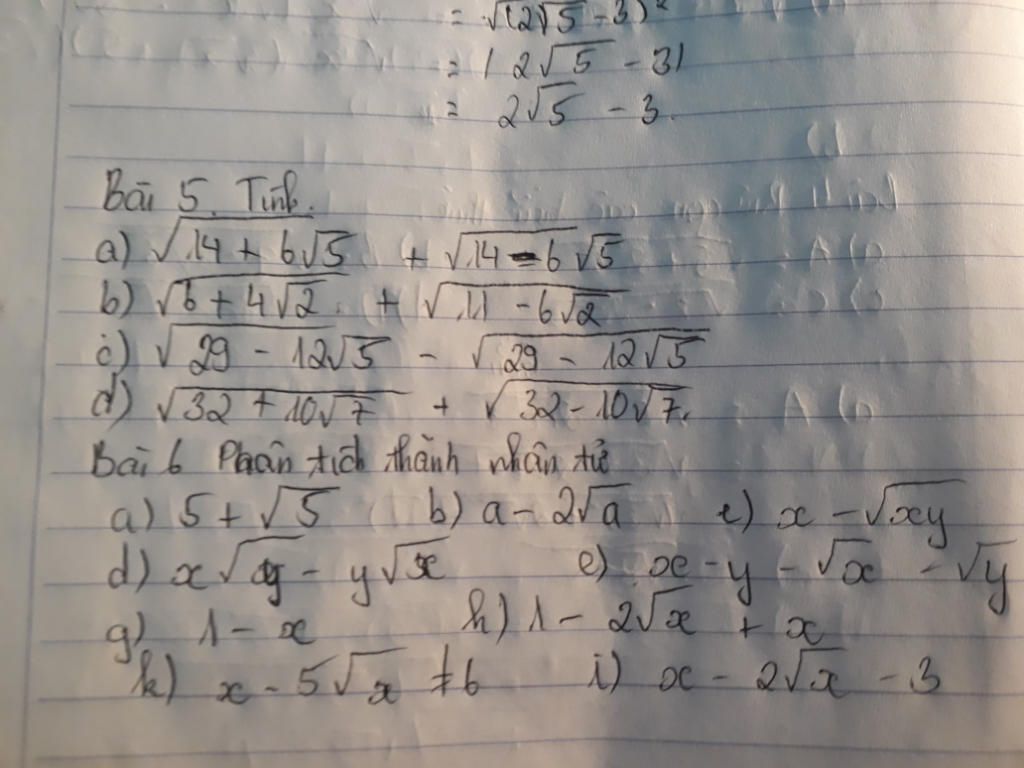 = √(2√5 - 3)²
= | 2√5 - 3|
= 2√5 - 3.
Bài 5. Tính.
a) √14 + 6√5 + √14 - 6√5
b) √6 + 4√2 + √11 - 6√2
c) √29 - 12√5 - √29 - 12√5
d) √32 + 10√7 + √32 - 10√7.
Bài 6 Phân tích thành nhân tử
a) 5 + √5 b) a - 2√a c) x - √xy
d) x√y - y√x e) x - y - √x - √y
g) 1 - x h) 1 - 2√x + x
k) x - 5√x + 6 i) x - 2√x - 3